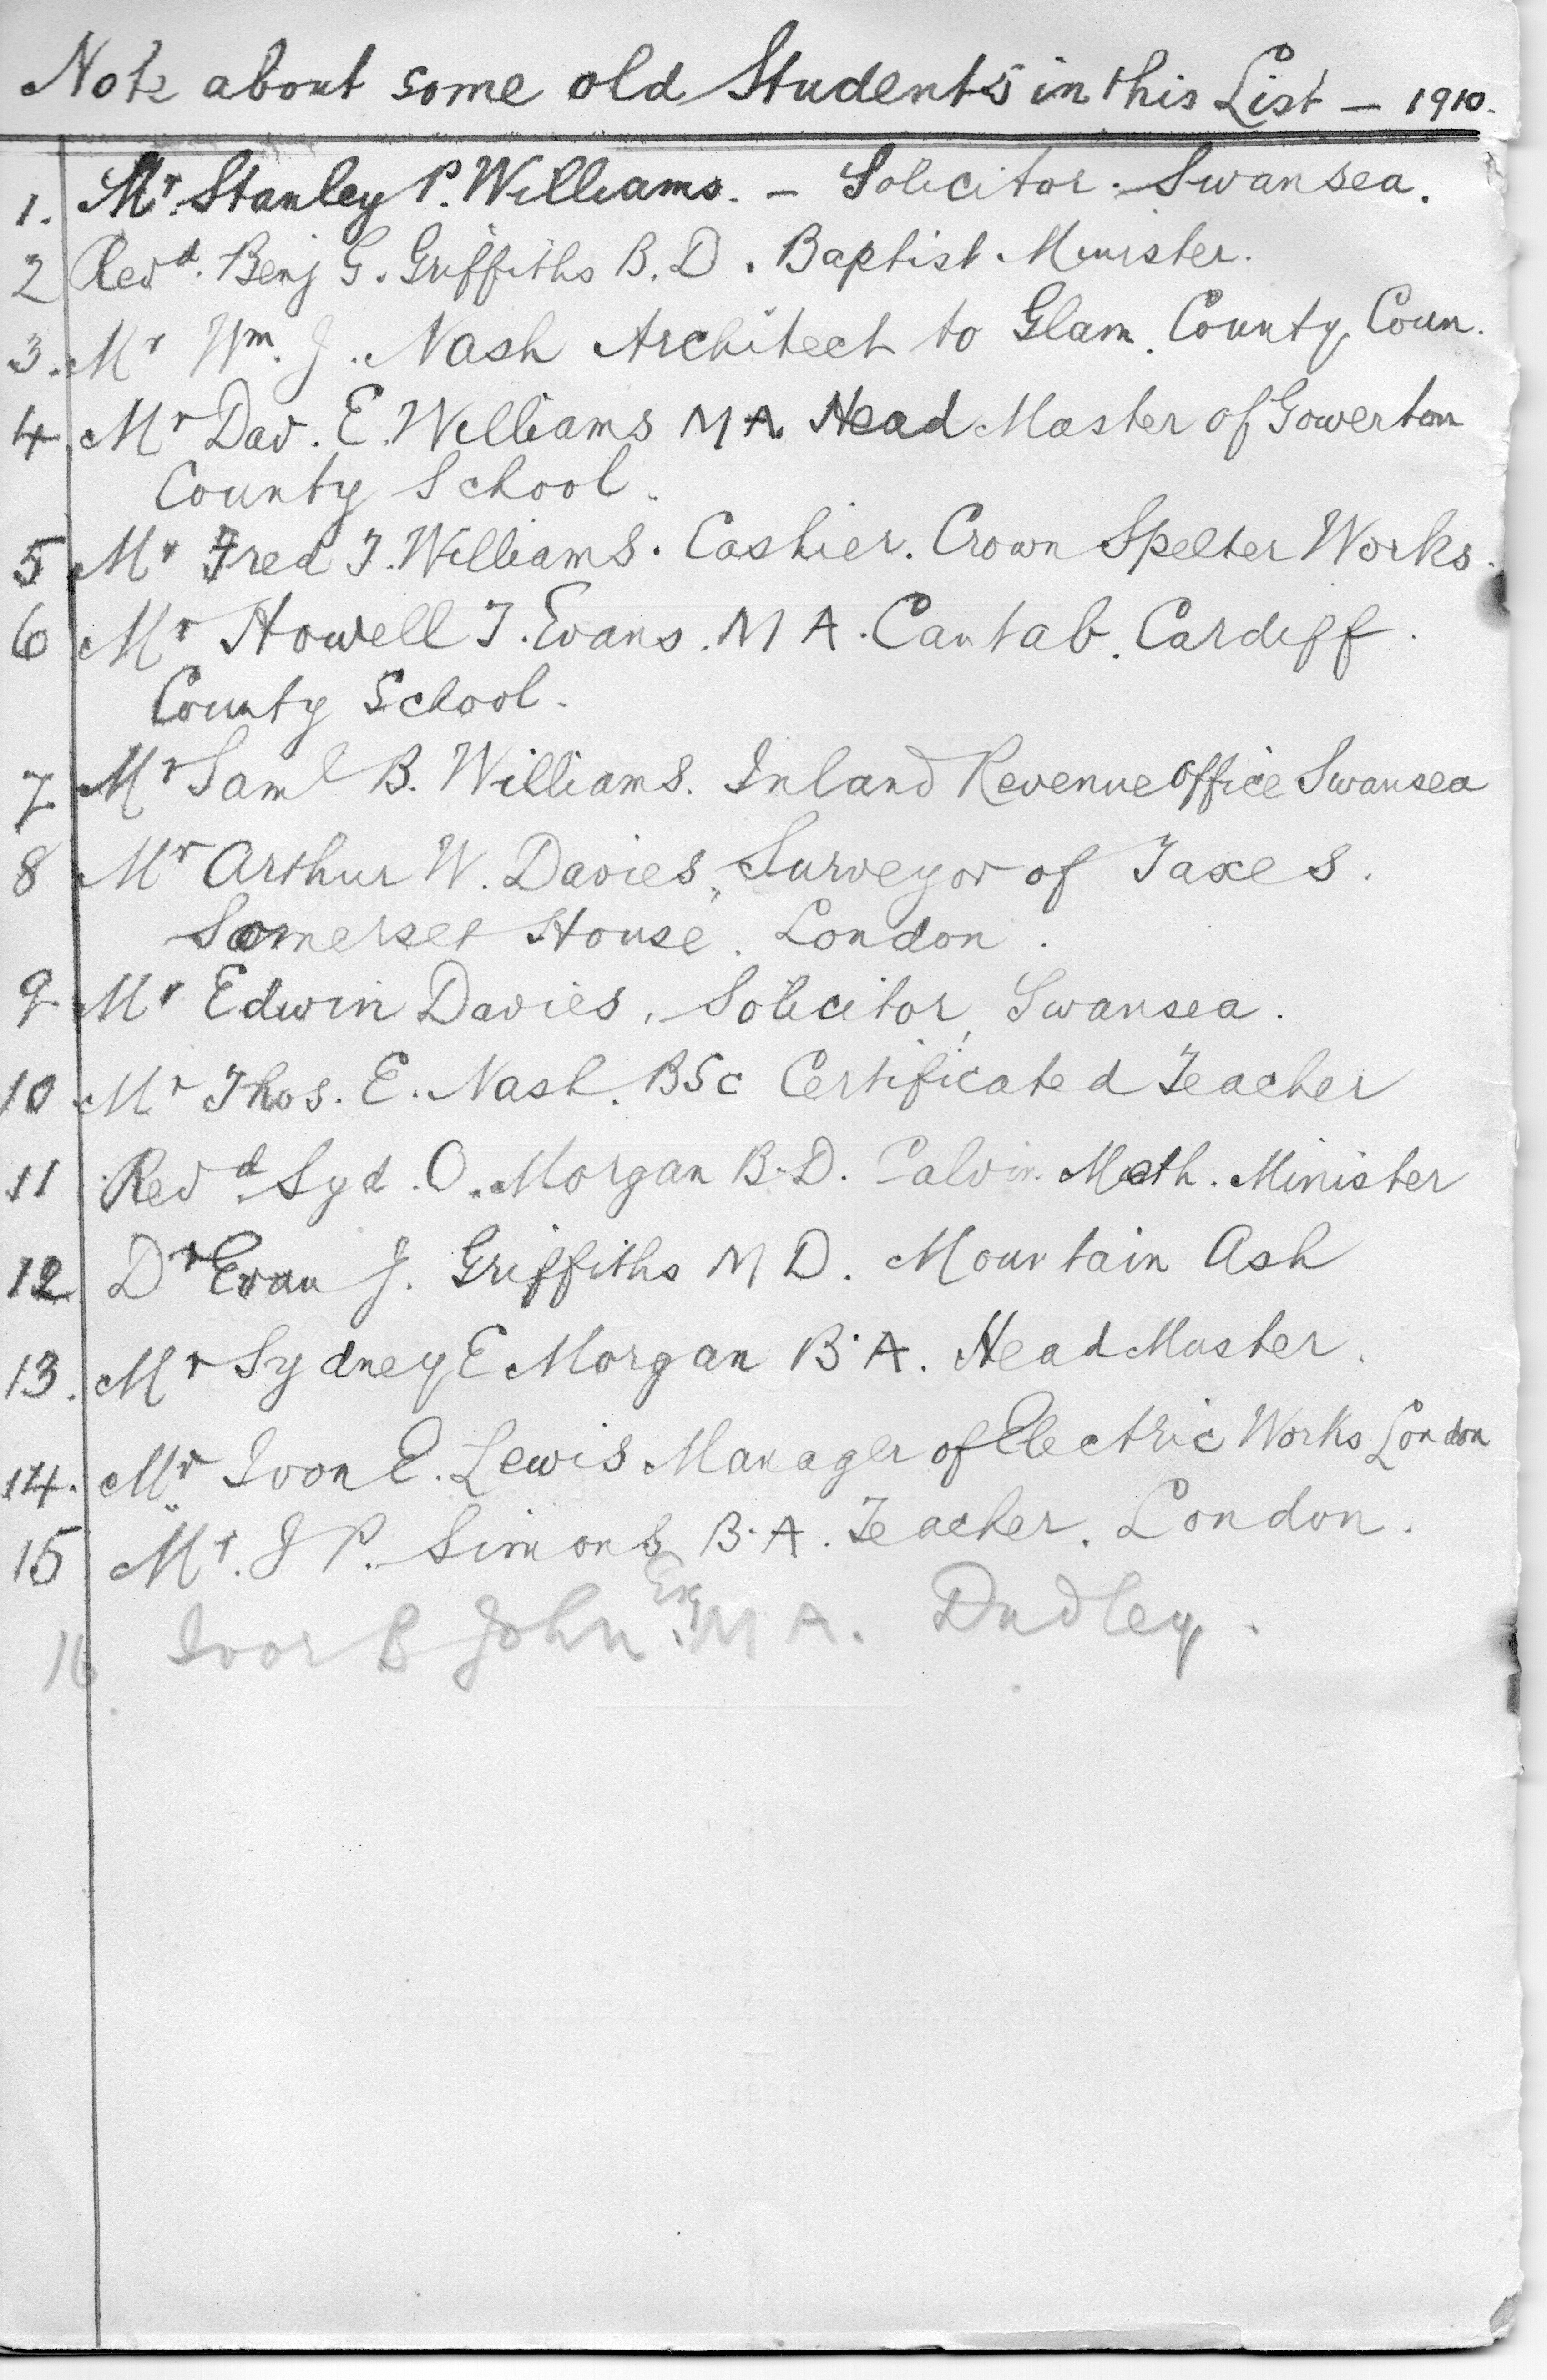 Note about some old Students in this List — 1910.
1. Mr. Stanley P. Williams. – Solicitor. Swansea.
2 Revd. Benj G. Griffiths B.D. Baptist Minister.
3. Mr Wm. J. Nash Architect to Glam. County Coun.
4 Mr Dav. E. Williams MA Head Master of Gowerton
County School.
5 Mr Fred J. Williams. Cashier. Crown Spelter Works.
6 Mr Howell J. Evans. M A. Cantab. Cardiff.
County School.
7. Mr Saml B. Williams. Inland Revenue Office Swansea
8 Mr Arthur W. Davies, Surveyor of Taxes.
Somerset House. London.
9. Mr Edwin Davies, Solicitor, Swansea.
10 Mr Thos. E. Nash. BSc Certificated Teacher
11 Revd. Syd. O. Morgan B.D. Calvin. Meth. Minister
12 Dr Evan J. Griffiths M D. Mountain Ash
13. Mr Sydney E Morgan B.A. Head Master.
14. Mr Ivon E. Lewis Manager of Electric Works London
15 Mr. J P. Simons B.A. Teacher. London.
16 Ivor B John Esq. M A. Dudley.